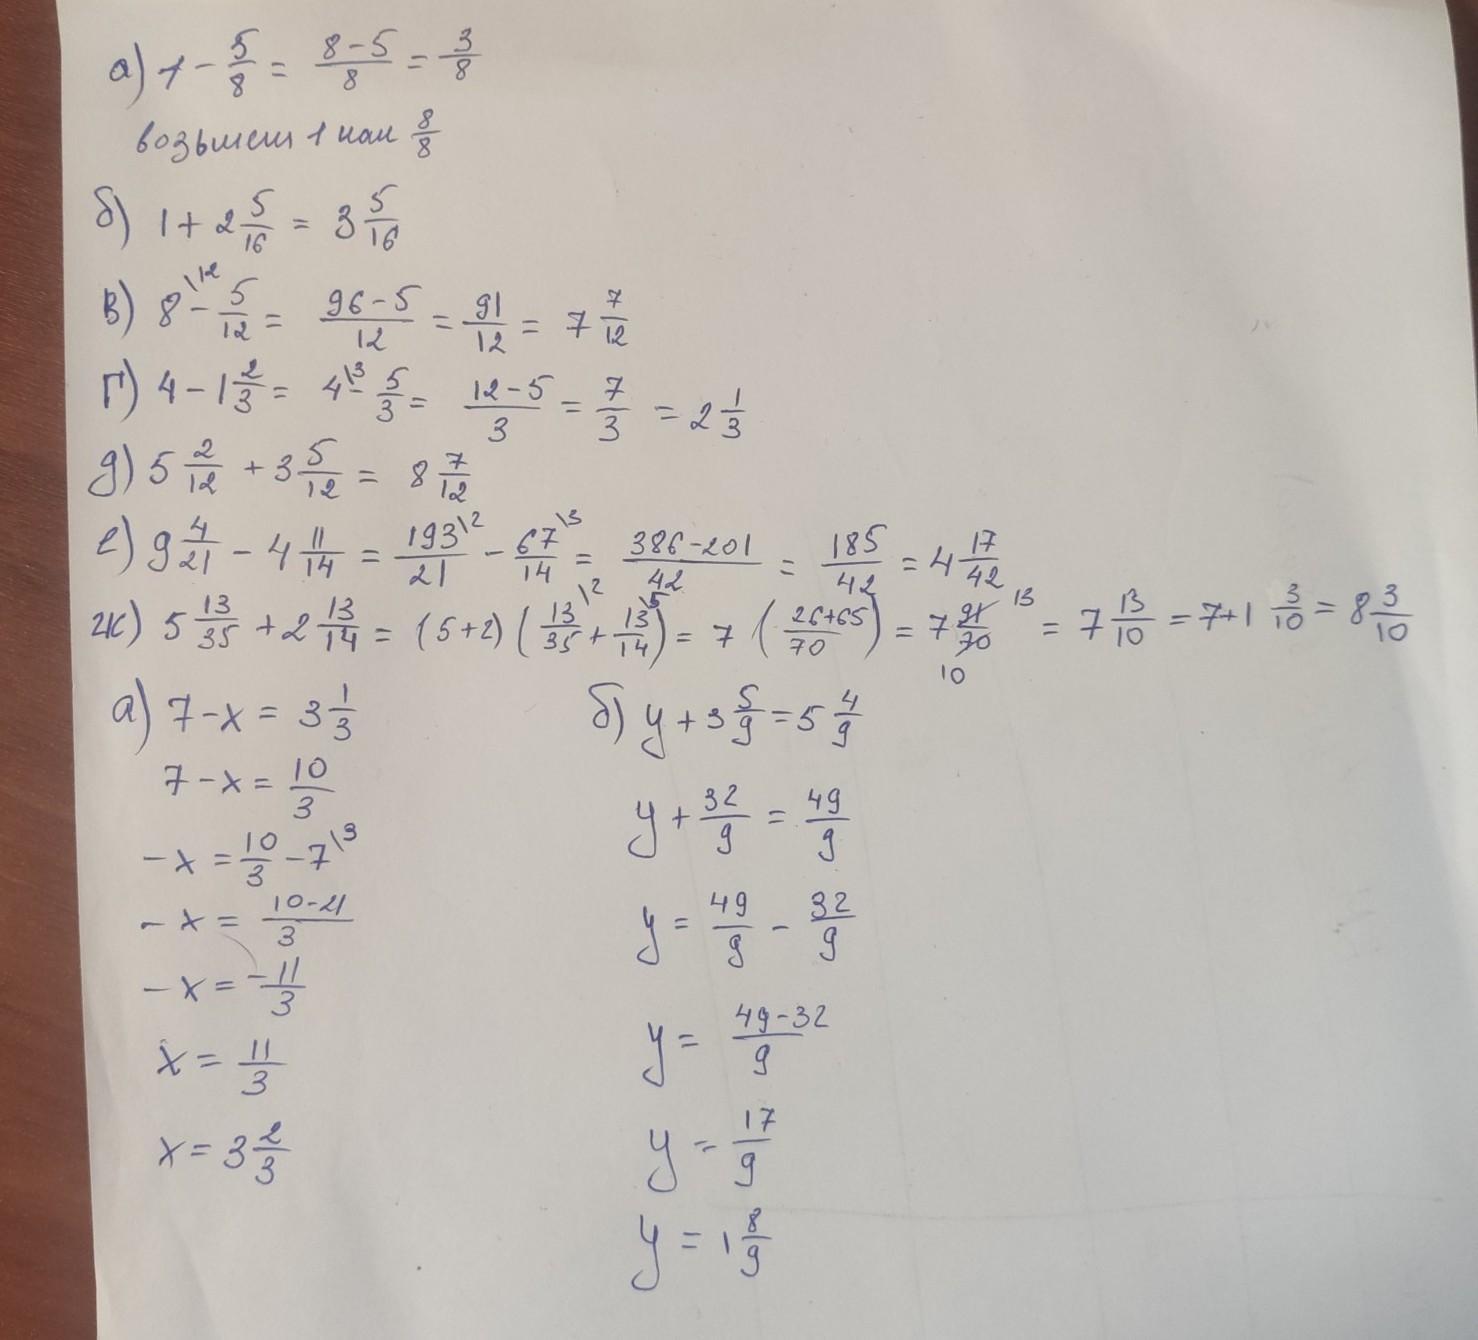 а) 1 - 5/8 = (8-5)/8 = 3/8
возьмем 1 как 8/8
б) 1 + 2 5/16 = 3 5/16
в) 8\12 - 5/12 = (96-5)/12 = 91/12 = 7 7/12
г) 4 - 1 2/3 = 4\3 - 5/3 = (12-5)/3 = 7/3 = 2 1/3
д) 5 2/12 + 3 5/12 = 8 7/12
е) 9 4/21 - 4 11/14 = 193/21\2 - 67/14\3 = (386-201)/42 = 185/42 = 4 17/42
ж) 5 13/35 + 2 13/14 = (5+2) (13/35\2 + 13/14\5) = 7 ((26+65)/70) = 7 91/70 13 10 = 7 13/10 = 7+1 3/10 = 8 3/10
а) 7-x = 3 1/3
7-x = 10/3
-x = 10/3 - 7\3
-x = (10-21)/3
-x = -11/3
x = 11/3
x = 3 2/3
б) y + 3 5/9 = 5 4/9
y + 32/9 = 49/9
y = 49/9 - 32/9
y = (49-32)/9
y = 17/9
y = 1 8/9